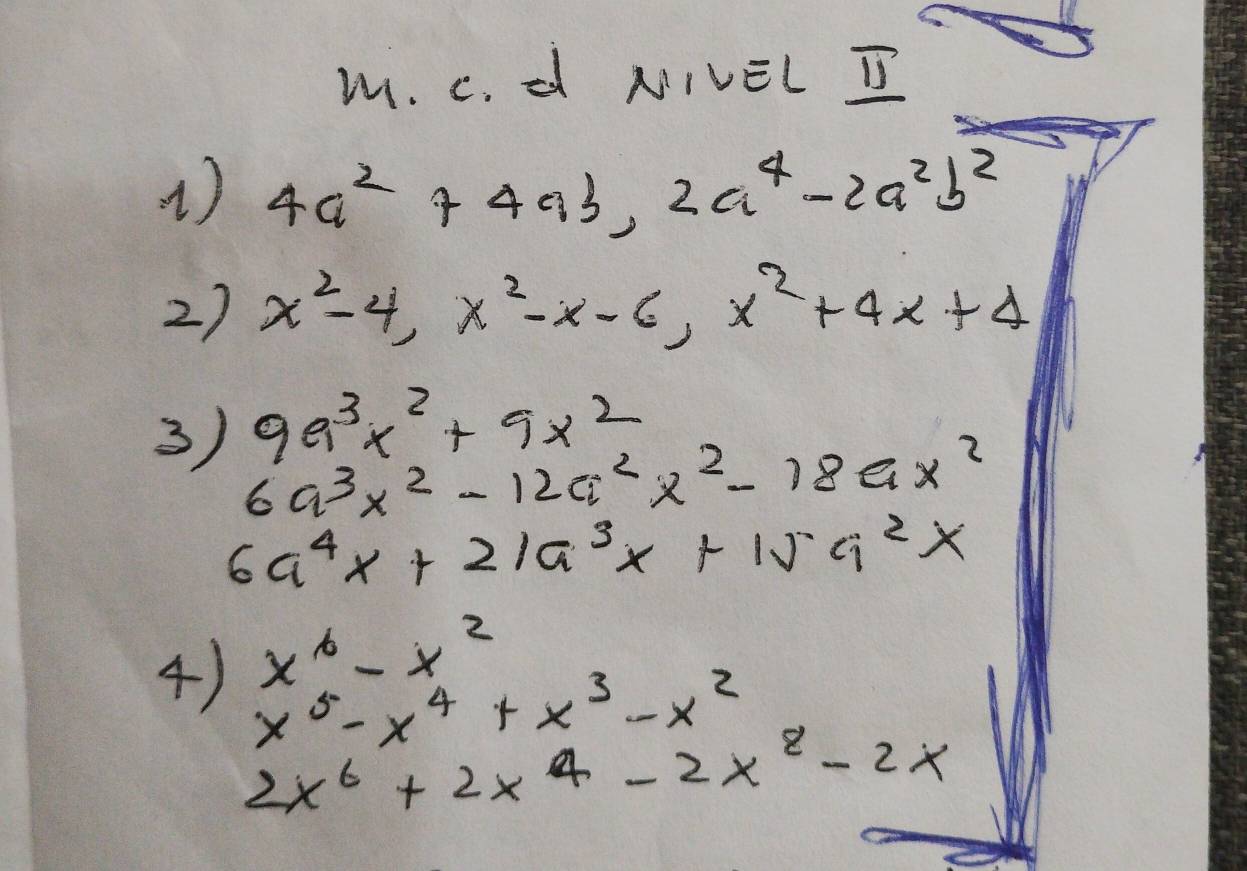 m. c. d NIVEL II
1) 4a² + 4ab, 2a⁴ - 2a²b²
2) x² - 4, x² - x - 6, x² + 4x + 4
3) 9a³x² + 9x²
6a³x² - 12a²x² - 18ax²
6a⁴x + 21a³x + 15a²x
4) x⁶ - x²
x⁵ - x⁴ + x³ - x²
2x⁶ + 2x⁴ - 2x⁸ - 2x